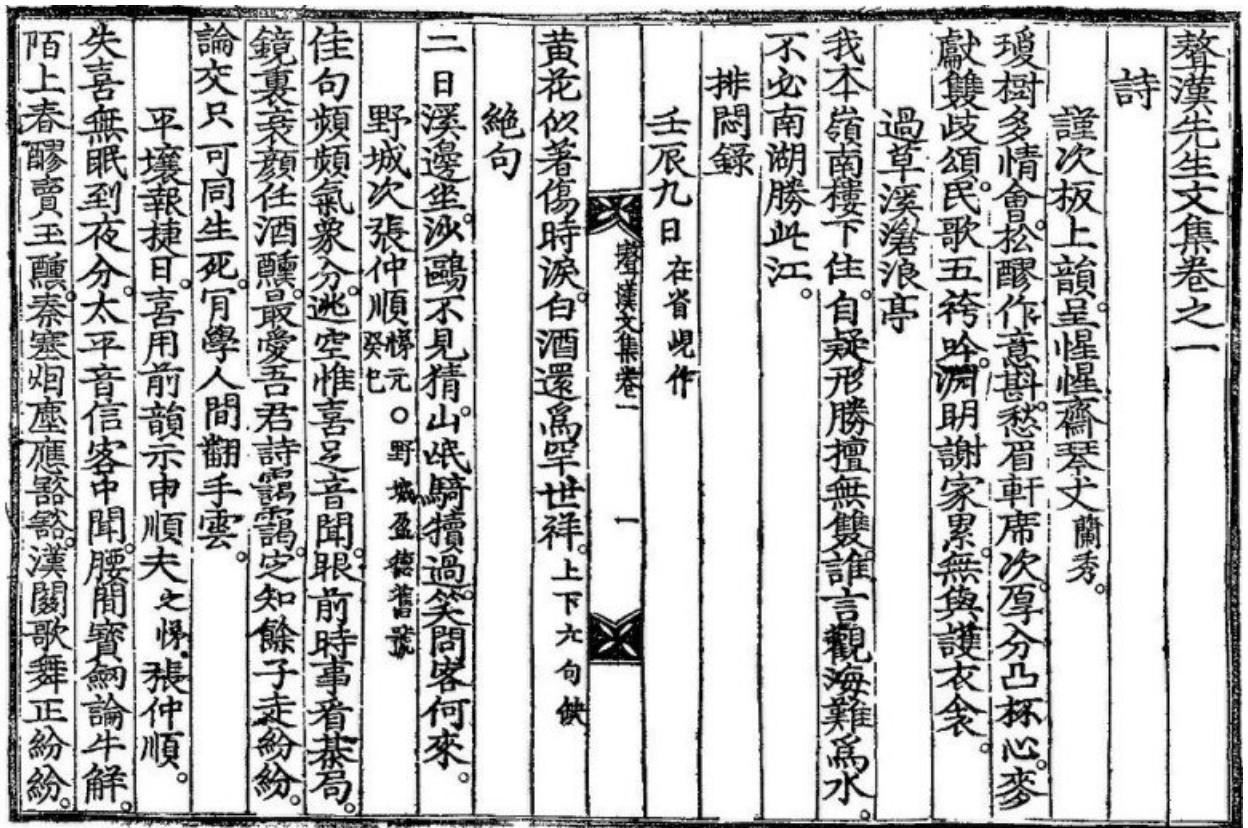 聱漢先生文集卷之一
詩
謹次板上韻呈惺惺齋琴丈蘭秀。
瓊樹多情會。松醪作意斟。愁眉軒席次。厚分凸杯心。麥
獻雙歧頌。民歌五袴吟。淵明謝家累。無與護衣衾。
過草溪滄浪亭
我本嶺南樓下住。自疑形勝擅無雙。誰言觀海難爲水。
不必南湖勝此江。
排悶錄
壬辰九日 在省峴作
聱漢文集卷一 一
黄花似著傷時淚。白酒還爲罕世祥。上下六句缺
絶句
二日溪邊坐。沙鷗不見猜。山氓騎犢過。笑問客何來。
野城次張仲順悌元○野城盈德舊號 癸巳
佳句頻頻氣象分。逃空惟喜足音聞。眼前時事看棊局。
鏡裏衰顔任酒醺。最愛吾君詩靄靄。定知餘子走紛紛。
論交只可同生死。肎學人間翻手雲。
平壤報捷日。喜用前韻示申順夫之悌張仲順。
失喜無眠到夜分。太平音信客中聞。腰間寶劒論牛解。
陌上春醪賣玉醺。秦塞烟塵應豁豁。漢關歌舞正紛紛。